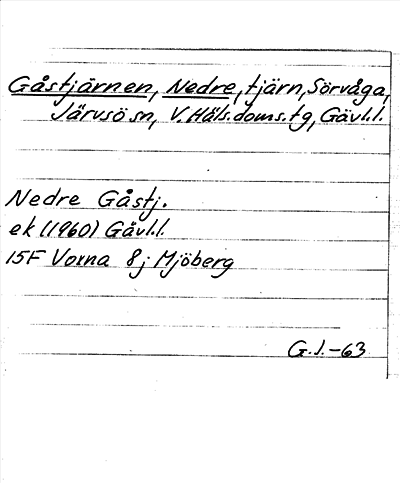 Gåstjärnen, Nedre, tjärn, Sörvåga,
Järvsö sn, V. Häls. doms. tg, Gävl.l.
Nedre Gåstj.
ek (1960) Gävl.l.
15F Voxna 8j Mjöberg
G.I.-63